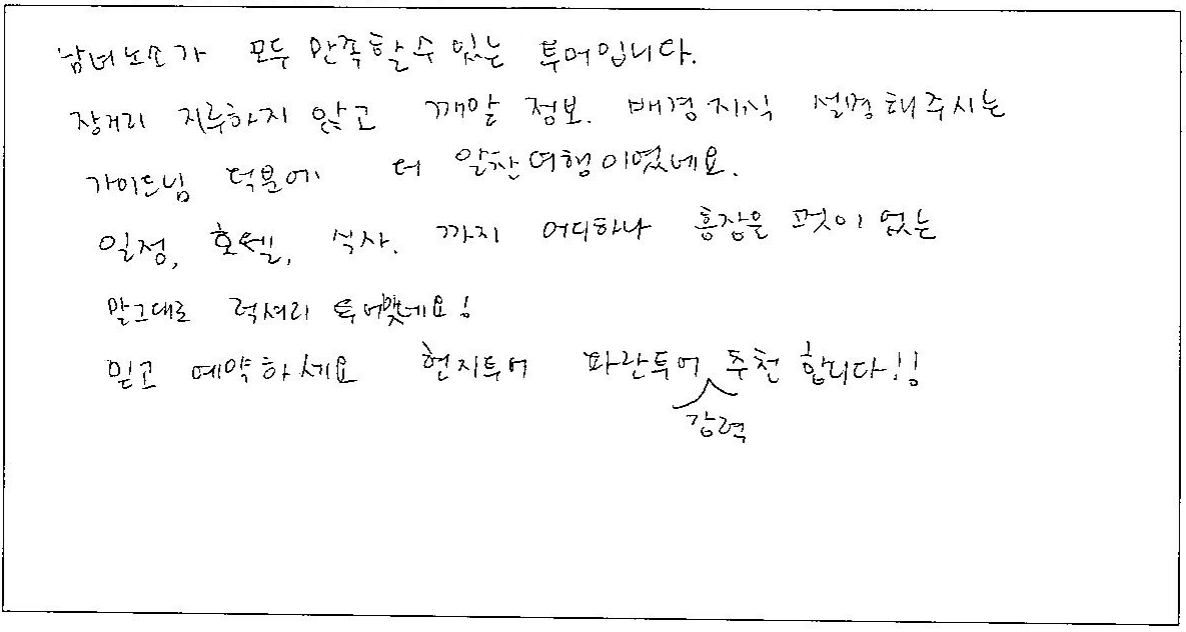 남녀노소가 모두 만족할수 있는 투어입니다.
장거리 지루하지 않고 깨알 정보. 배경지식 설명해주시는
가이드님 덕분에 더 알찬여행이였네요.
일정, 호텔, 식사. 까지 어디하나 흠잡을 껏이 없는
말그대로 럭셔리 투어맞네요!
믿고 예약하세요 현지투어 파란투어 강력 추천 합니다!!